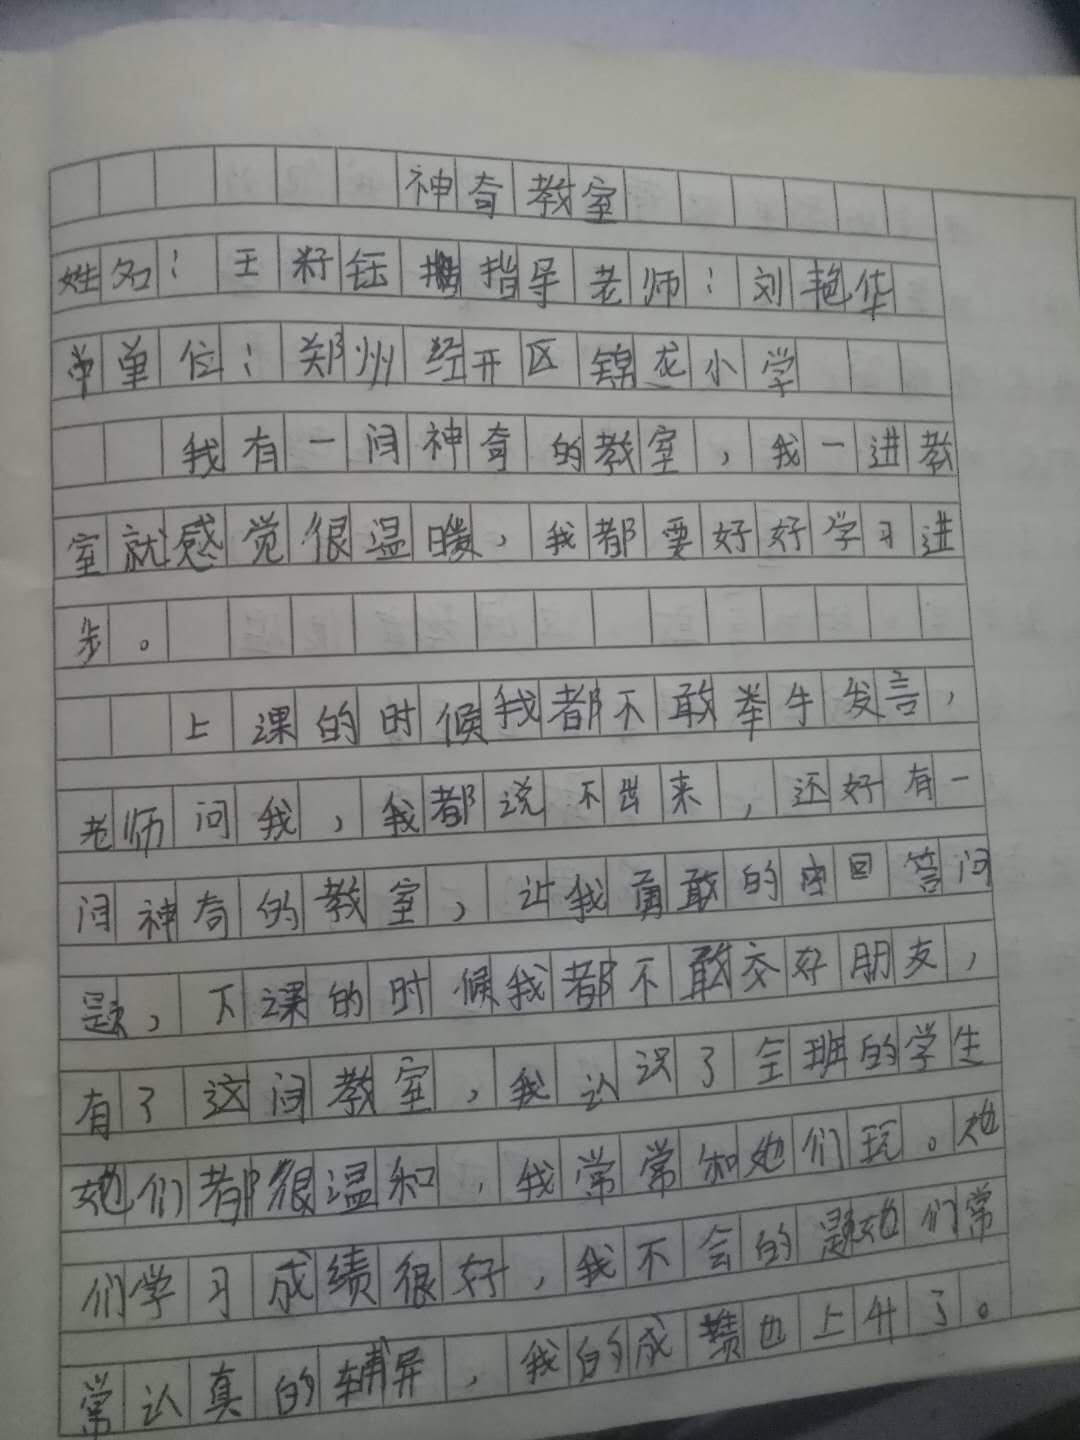 神奇教室
姓名：王籽钰 指导老师：刘艳华
单位：郑州经开区锦龙小学
我有一间神奇的教室，我一进教
室就感觉很温暖，我都要好好学习进
步。
上课的时候我都不敢举手发言，
老师问我，我都说不出来，还好有一
间神奇的教室，让我勇敢的回答问
题，下课的时候我都不敢交好朋友，
有了这间教室，我认识了全班的学生
她们都很温和，我常常和她们玩。她
们学习成绩很好，我不会的题她们常
常认真的辅导，我的成绩也上升了。